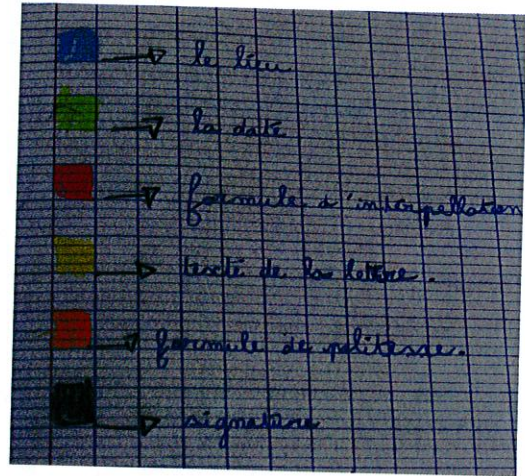 le lieu
la date
formule d'interpellation
texte de la lettre.
formule de politesse.
signature